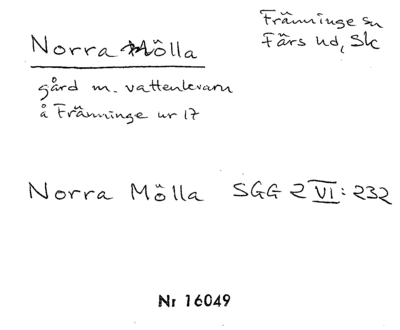 Norra Mölla
Fränninge sn
Färs hd, Sk
gård m. vattenkvarn
å Fränninge nr 17
Norra Mölla SGG 2 VI: 232
Nr 16049